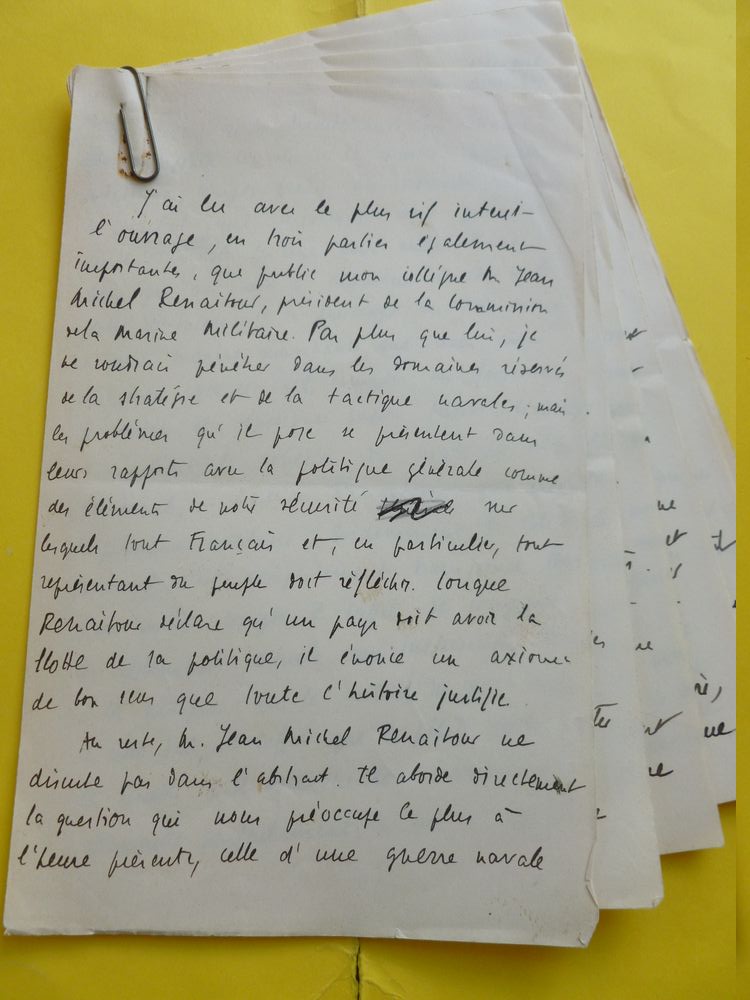 J'ai lu avec le plus vif intérêt
l'ouvrage, en trois parties également
importantes, que publie mon collègue M. Jean
Michel Renaitour, président de la Commission
de la Marine Militaire. Pas plus que lui, je
ne voudrais pénétrer dans les domaines réservés
de la stratégie et de la tactique navales ; mais
les problèmes qu'il pose se présentent dans
leurs rapports avec la politique générale comme
des éléments de notre sécurité sur
lesquels tout Français et, en particulier, tout
représentant du peuple doit réfléchir. Lorsque
Renaitour déclare qu'un pays doit avoir la
flotte de sa politique, il énonce un axiome
de bon sens que toute l'histoire justifie
Au reste, M. Jean Michel Renaitour ne
discute pas dans l'abstrait. Il aborde directement
la question qui nous préoccupe le plus à
l'heure présente, celle d'une guerre navale
ne
et
ne
ne
ne